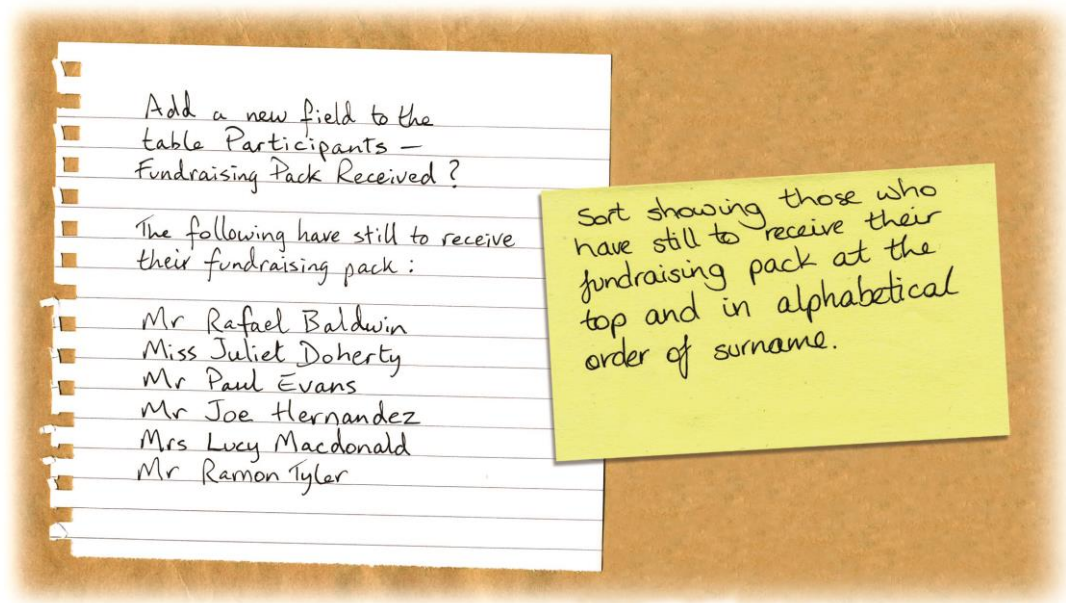 Add a new field to the
table Participants –
Fundraising Pack Received?
The following have still to receive
their fundraising pack:
Mr Rafael Baldwin
Miss Juliet Doherty
Mr Paul Evans
Mr Joe Hernandez
Mrs Lucy Macdonald
Mr Ramon Tyler
Sort showing those who
have still to receive their
fundraising pack at the
top and in alphabetical
order of surname.